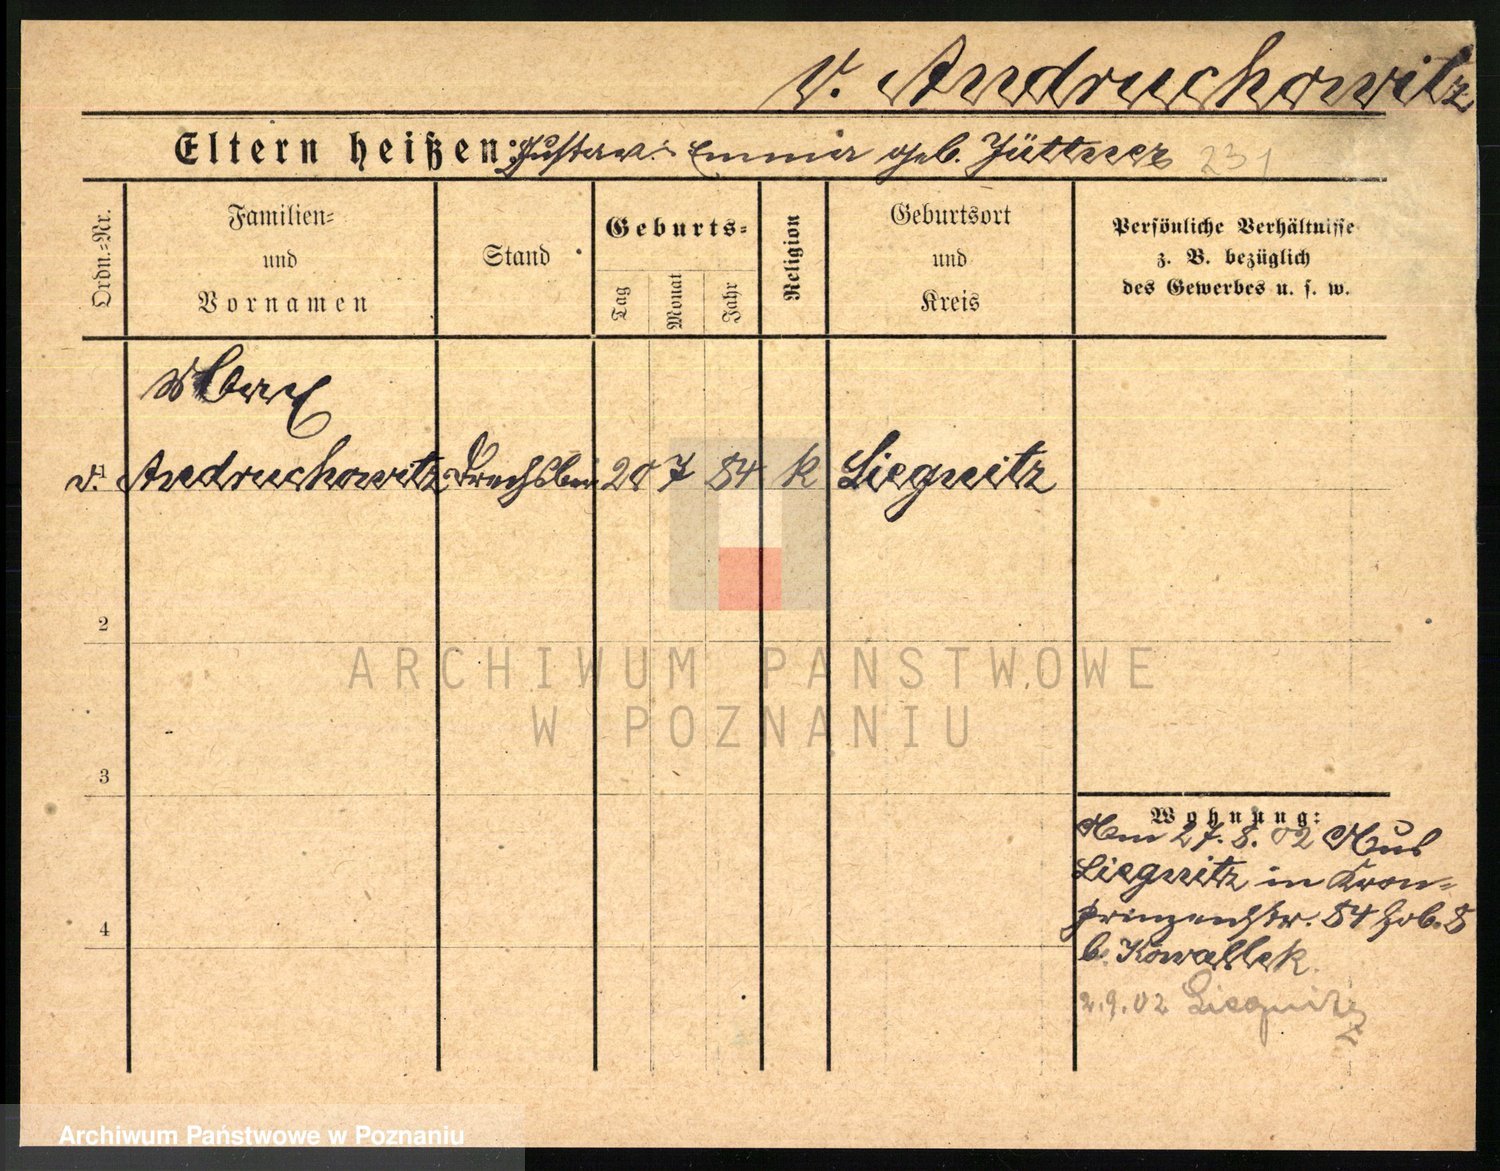 v. Andruchowitz
Eltern heißen: Gustav. Emma geb. Jüttner 231
Ordn.=Nr.
Familien=
und
Vornamen
Stand
Geburts=
Tag
Monat
Jahr
Religion
Geburtsort
und
Kreis
Persönliche Verhältnisse
z. B. bezüglich
des Gewerbes u. s. w.
1
v. Andruchowitz 20 7 84 k Liegnitz
2
ARCHIWUM PAŃSTWOWE
W POZNANIU
3
Wohnung:
Am 27.8.02 Aus
Liegnitz in Kron-
prinzenstr. 84
b. Kowallek.
4
2.9.02 Liegnitz
Archiwum Państwowe w Poznaniu